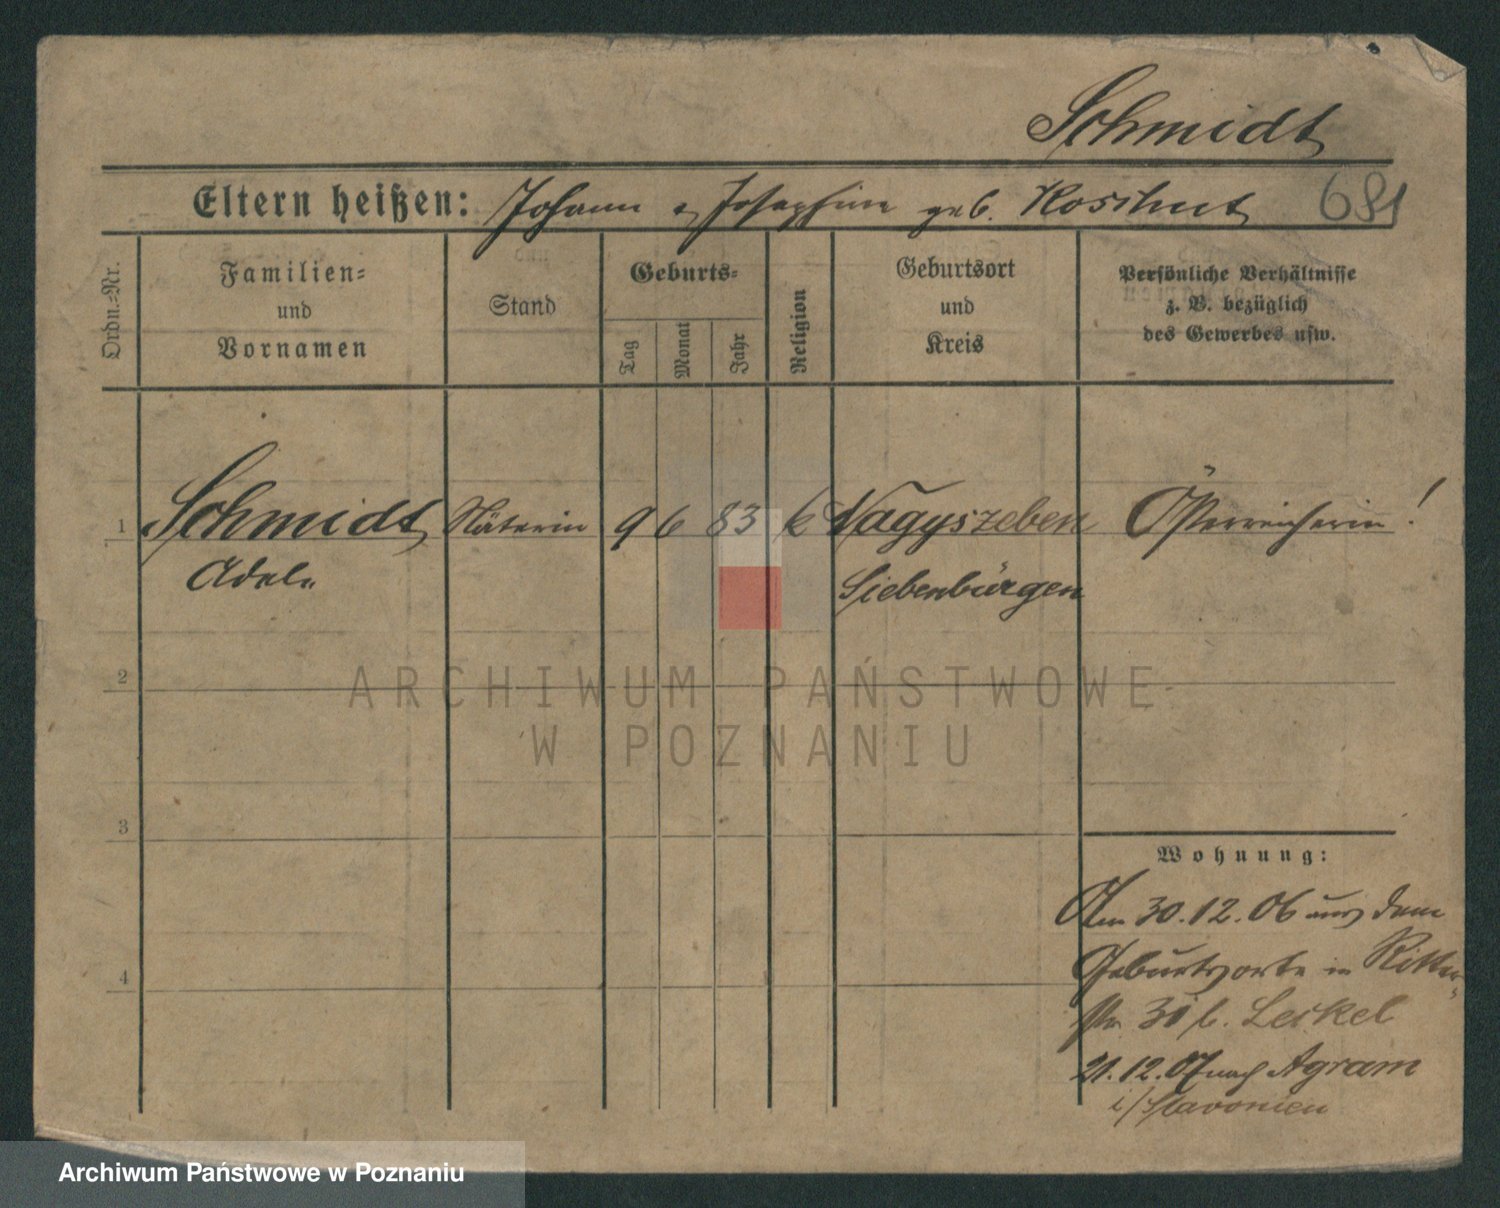 Schmidt
Eltern heißen: Johann u Josephine geb. Kosihut 681
Ordn.=Nr.
Familien=
und
Vornamen
Stand
Geburts=
Tag
Monat
Jahr
Religion
Geburtsort
und
Kreis
Persönliche Verhältnisse
z. B. bezüglich
des Gewerbes usw.
1 Schmidt Näterin 9 6 83 k Nagyszeben Österreicherin!
Adele Siebenbürgen
2
ARCHIWUM PAŃSTWOWE
W POZNANIU
3
Wohnung:
Am 30.12.06 aus dem
4 Geburtsorte in Ritter-
str 31 b. Leikel
21.12.07 nach Agram
i/Slavonien
Archiwum Państwowe w Poznaniu